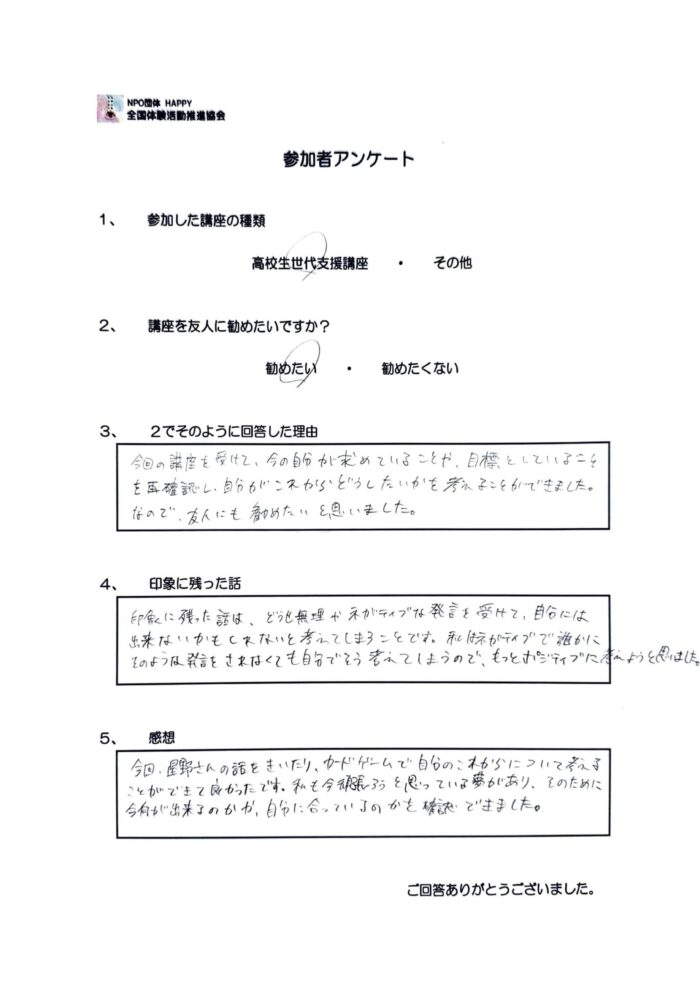 NPO団体 HAPPY
全国体験活動推進協会
参加者アンケート
1、 参加した講座の種類
高校生世代支援講座 ・ その他
2、 講座を友人に勧めたいですか？
勧めたい ・ 勧めたくない
3、 2でそのように回答した理由
今回の講座を受けて、今の自分が求めていることや、目標としていること
を再確認し、自分がこれからどうしたいかを考えることができました。
なので、友人にも勧めたいと思いました。
4、 印象に残った話
印象に残った話は、どうせ無理やネガティブな発言を受けて、自分には
出来ないかもしれないと考えてしまうことです。私はネガティブで誰かに
そのような発言をされなくても自分でそう考えてしまうので、もっとポジティブに考えようと思いました。
5、 感想
今回、星野さんの話をきいたり、カードゲームで自分のこれからについて考える
ことができて良かったです。私も今頑張ろうと思っている夢があり、そのために
今何が出来るのかや、自分に合っているのかを確認できました。
ご回答ありがとうございました。